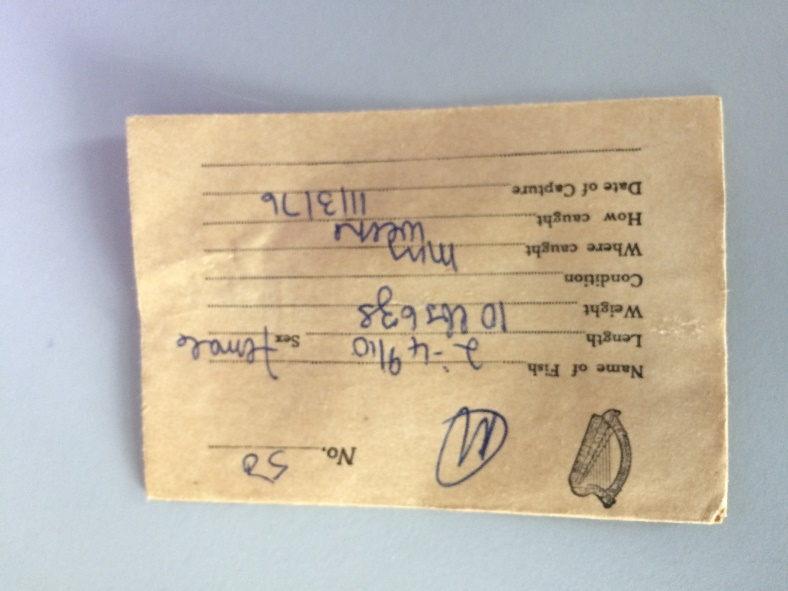 M No. 50
Name of Fish
Length 2'-4 9/10 Sex Female
Weight 10 lbs 6 ozs
Condition
Where caught
How caught
Date of Capture 11/3/76